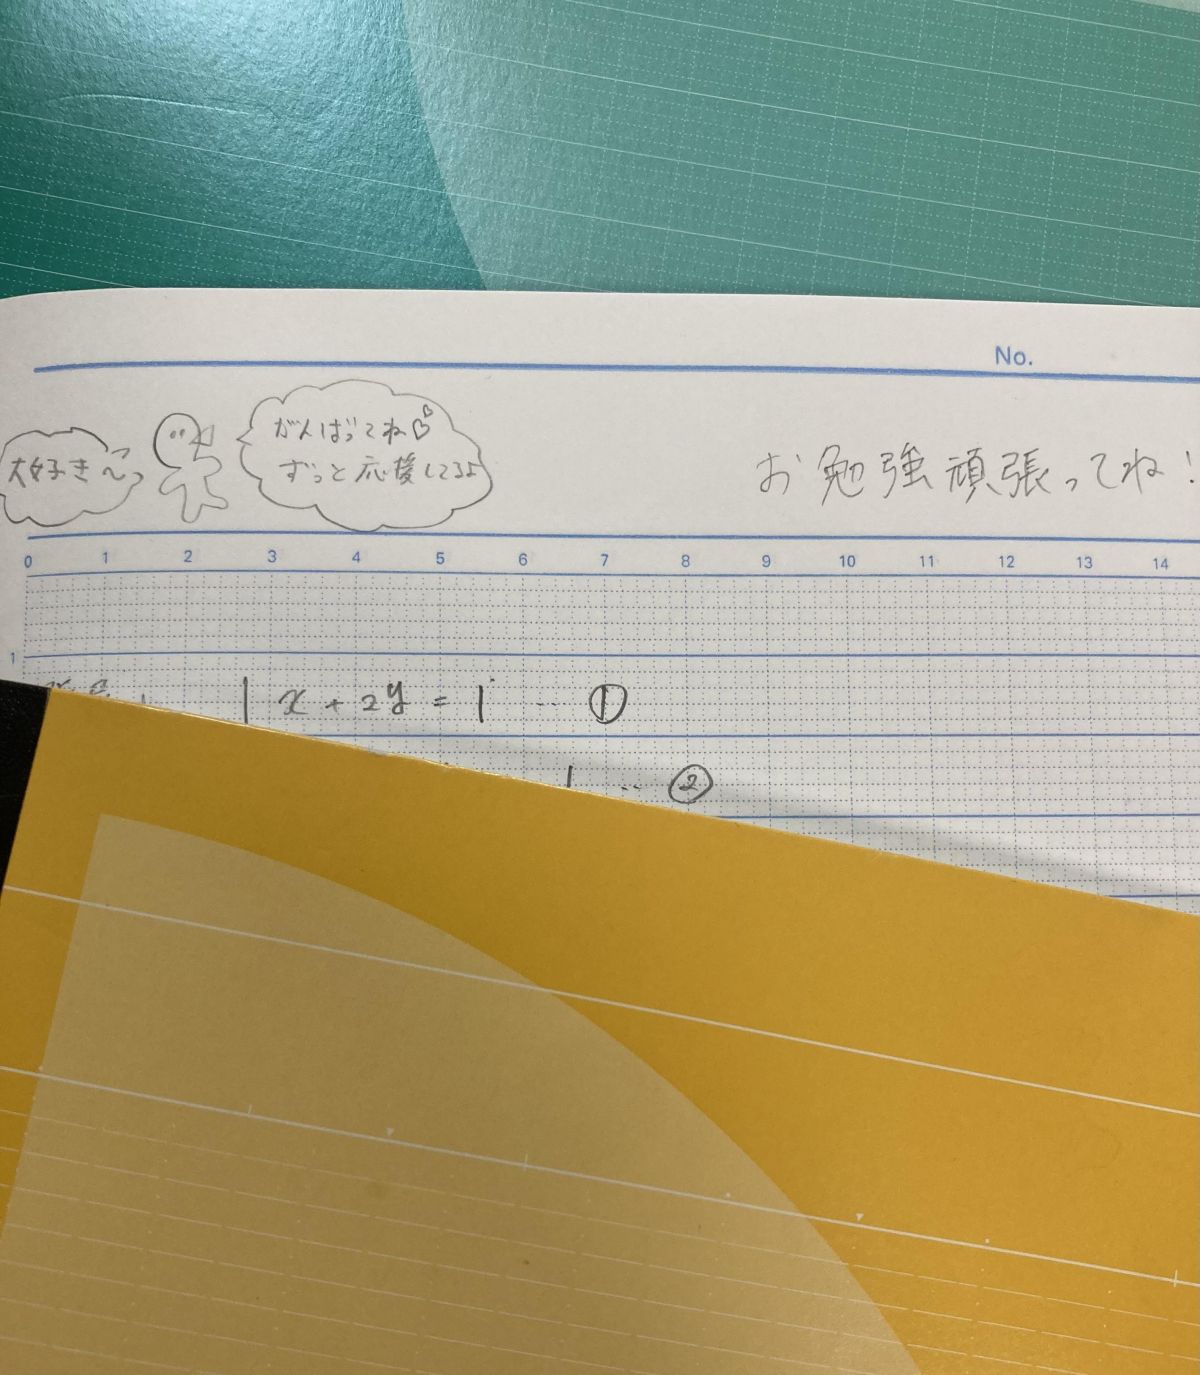 No.
大好き〜っ
がんばってね♡♡
ずっと応援してるよ
お勉強頑張ってね!
0 1 2 3 4 5 6 7 8 9 10 11 12 13 14
1
| x + 2y = 1 … ①
… ②